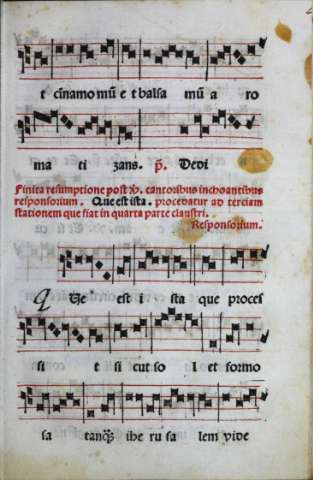 t cīnamo mū e t balsa mū a ro
ma ti zans. p̄. Dedi
Finita resumptione post ꝟ. cantoribus inchoantibus
responsorium. Que est ista. procedatur ad terciam
stationem que fiat in quarta parte claustri.
Responsorium.
Q Ue est i sta que proces
si t si cut so l et formo
sa tanq̄ ihe ru sa lem vide